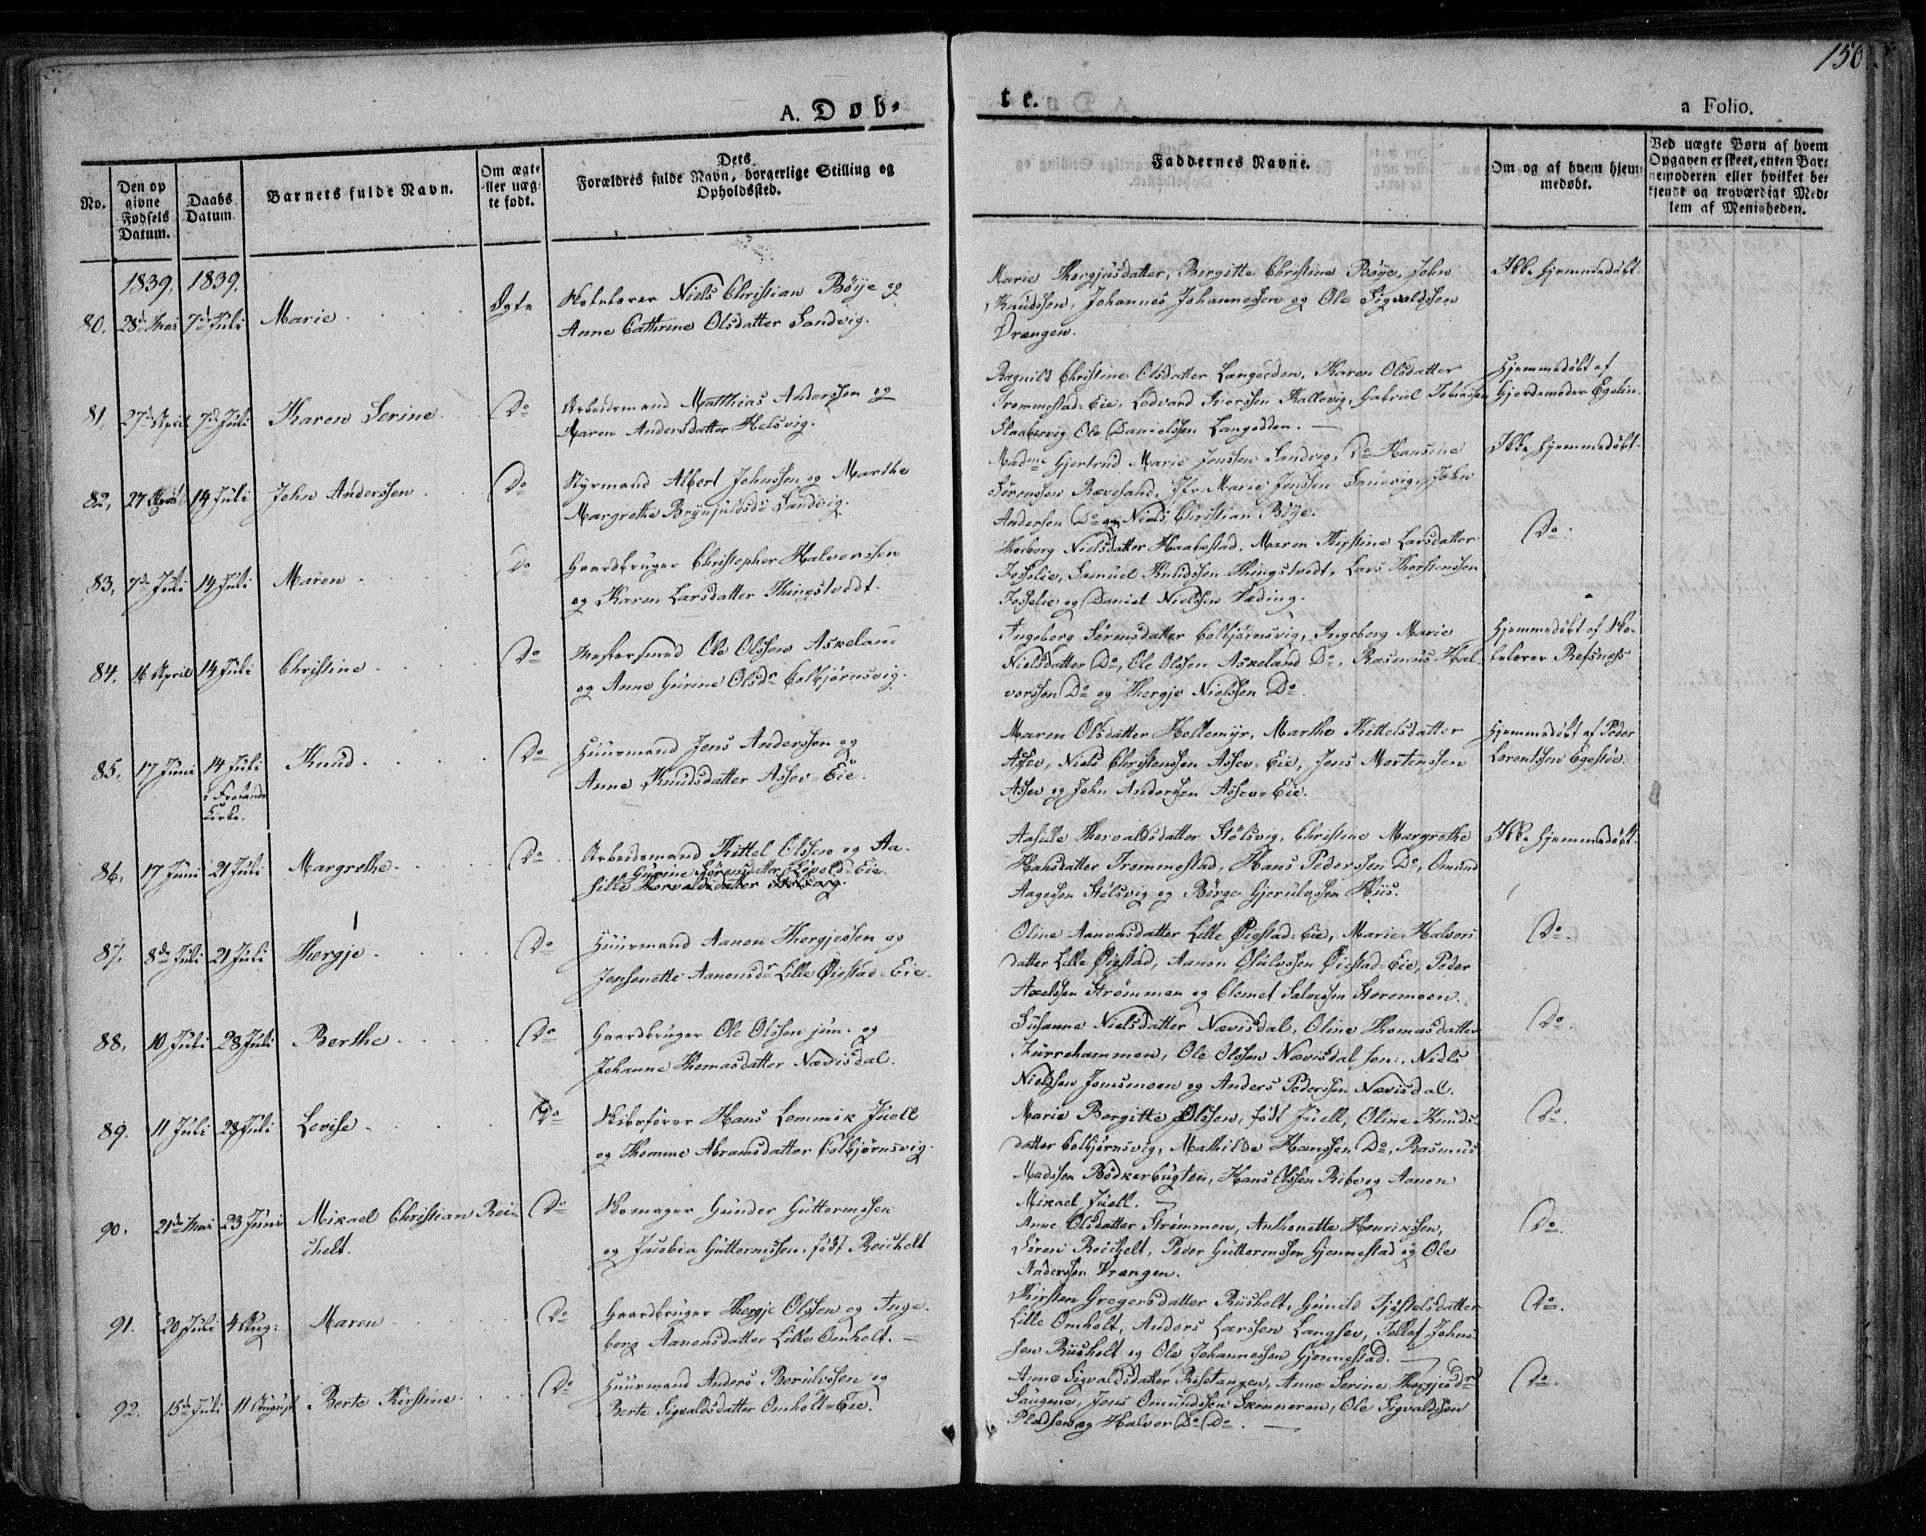 150.
A. Døb-
te.
a Folio.
No.
Den opgivne Fødsels Datum.
Daabs Datum.
Barnets fulde Navn.
Om ægte eller uægte født.
Dets Forældres fulde Navn, borgerlige Stilling og Opholdssted.
Faddernes Navne.
Om og af hvem hjemmedøbt.
Ved uægte Børn af hvem Opgaven er skeet, enten Barnemoderen eller hvilket bekjendt og troværdigt Medlem af Menigheden.
1839. 1839.
80. 28de Mai 7de Juli Marie Ægte
Niels Christian Böÿe og
Anne Cathrine Olsdatter Sandvig.
Marie Thergjusdatter, Birgitte Christine Böÿe, John
Knudssen, Johannes Johannessen og Ole Sigvaldssen
Vrængen.
Ikke hjemmedøbt.
81. 27de April 7de Juli Karen Serine Do
Arbeidsmand Matthias Anderssen og
Maren Andersdatter Helsvig.
Ragnild Christine Olsdatter Langodden, Karen Olsdatter
Trommestad-Eie, Lodvard Iverssen Kallevig, Gabriel Tobiassen
Ole Danielssen Langodden.
Hjemmedøbt af
Gjordemoder Egelin.
82. 27 April 14 Juli John Anderssen Do
Styrmand Albert Johnssen og Marthe
Margrethe Sandvig.
Madme Gjertrud Marie Jenssen Sandvig, Do Hansine
Sørenssen Rævesand, Jfr. Marie Jenssen Sandvig, John
Andersen Do og Niels Christian Böÿe.
Ikke hjemmedøbt.
83. 7de Juli 14 Juli Maren Do
Gaardbruger Christopher Halvorssen
og Karen Larsdatter Thingstvedt.
Thorborg Nielsdatter Haabestad, Maren Kirstine Larsdatter
Fosselie, Samuel Knudssen Thingstvedt, Lars Thorstenssen
Fosselie og Daniel Nielssen Væding.
Do.
84. 16 April 14 Juli Christine Do
Ole Olssen Askeland
og Anne Gurine Olsdr Colbjørnsvig.
Ingeborg Sørensdatter Colbjørnsvig, Ingeborg Marie
Nielsdatter Do, Ole Olssen Askeland Do, Rasmus Hal-
vorssen Do og Thergje Nielssen Do.
Hjemmedøbt af Sko-
lelærer Refsnes
85. 17 Juni 14 Juli
i Frolands
Kirke.
Knud Do
Huusmand Jens Anderssen og
Anne Knudsdatter Assev-Eie.
Maren Olsdatter Hollemyr, Marthe Kittelsdatter
Assev, Niels Christenssen Assev-Eie, Jens Mortenssen
Assev og John Anderssen Assev-Eie.
Hjemmedøbt af Peder
Lorentssen Egestøe.
86. 17 Juni 21 Juli Margrethe Do
Arbeidsmand Kittel Olssen og Aa-
Gurine Sørensdatter Løvold-Eie.
sille Thorvaldsdatter Stølsvig.
Aasille Thorvaldsdatter Stølsvig, Christine Margrethe
Hansdatter Trommestad, Hans Pederssen Do, Omund
Aagesen Stølsvig og Børge Gjerulvssen Hiis.
Ikke hjemmedøbt.
87. 8de Juli 21 Juli Thergje Do
Huusmand Aanon Thergjessen og
Jensenette Aanonsdr Lille Øiestad-Eie.
Oline Aanonsdatter Lille Øiestad-Eie, Marie Halvors-
datter Lille Øiestad, Aanon Osulvssen Øiestad-Eie, Peder
Axelssen Strømmen og Clemet Salvessen Storemoen.
Do.
88. 10 Juli 28 Juli Berthe Do
Gaardbruger Ole Olssen jun. og
Johanne Thomasdatter Nævisdal.
Susanne Nielsdatter Nævisdal, Oline Thomasdatter
Kurrehammen, Ole Olssen Nævisdal sen:, Niels
Nielssen Jomsmoen og Anders Pederssen Nævisdal.
Do.
89. 11 Juli 28 Juli Lovise Do
Skibsfører Hans Lemmik Juell
og Thomine Abramsdatter Colbjørnsvig.
Marie Bergitte Olssen, født Juell, Oline Knuds-
datter Colbjørnsvig, Mathilde Hanssen Do, Rasmus
Madssen Bödkerbugten, Hans Olssen Ribe og Aanon
Mikael Juell.
Do.
90. 21de Mai 23 Juni Mikael Christian Rei-
chelt.
Do
Skomager Gunder Guttormssen
og Jacobia Guttormssen, født Reichelt
Anne Olsdatter Strømmen, Anthonette Henrikssen,
Søren Reichelt, Peder Guttormssen Gjennestad og Ole
Anderssen Vrængen.
Do.
91. 20 Juli 4 Aug: Maren Do
Gaardbruger Thergje Olssen og Inge-
borg Aanonsdatter Lille Omholt.
Kirsten Gregersdatter Riisholt, Gunild Tjøstelsdatter
Lille Omholt, Anders Larssen Langsev, Tellef Johns-
sen Riisholt og Ole Johannessen Gjennestad.
Do.
92. 15de Juli 11 August Berte Kirstine Do
Huusmand Anders Berulvssen og
Berte Sigvaldsdatter Omholt-Eie.
Anne Sigvaldsdatter Risetangen, Anne Serine Thergjesdr
Saugene, Jens Omundssen Skinneren, Ole Sigvaldssen
Pladsen og Halvor Do Do
Do.